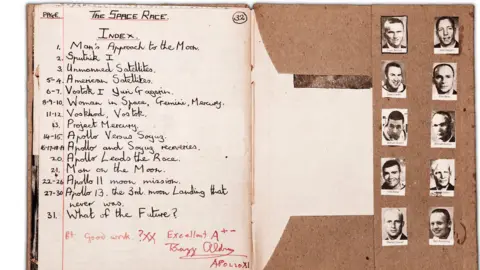 PAGE. THE SPACE RACE. 32
INDEX.
1. Man's Approach to the Moon.
2. Sputnik I
3. Unmanned Satellites.
5-4. American Satellites.
6-7. Vostok I Yuri Gagarin.
8-9-10. Woman in Space, Gemini, Mercury.
11-12. Voskhod, Vostok.
13. Project Mercury.
14-15. Apollo Versus Soyuz.
Apollo and Soyuz recoveries.
20. Apollo Leads the Race.
21. Man on the Moon.
22-26. Apollo 11 moon mission.
27-30. Apollo 13. the 3rd moon Landing that
never was.
31. What of the Future?
Good work. Excellent A+
Buzz Aldrin
APOLLO XI